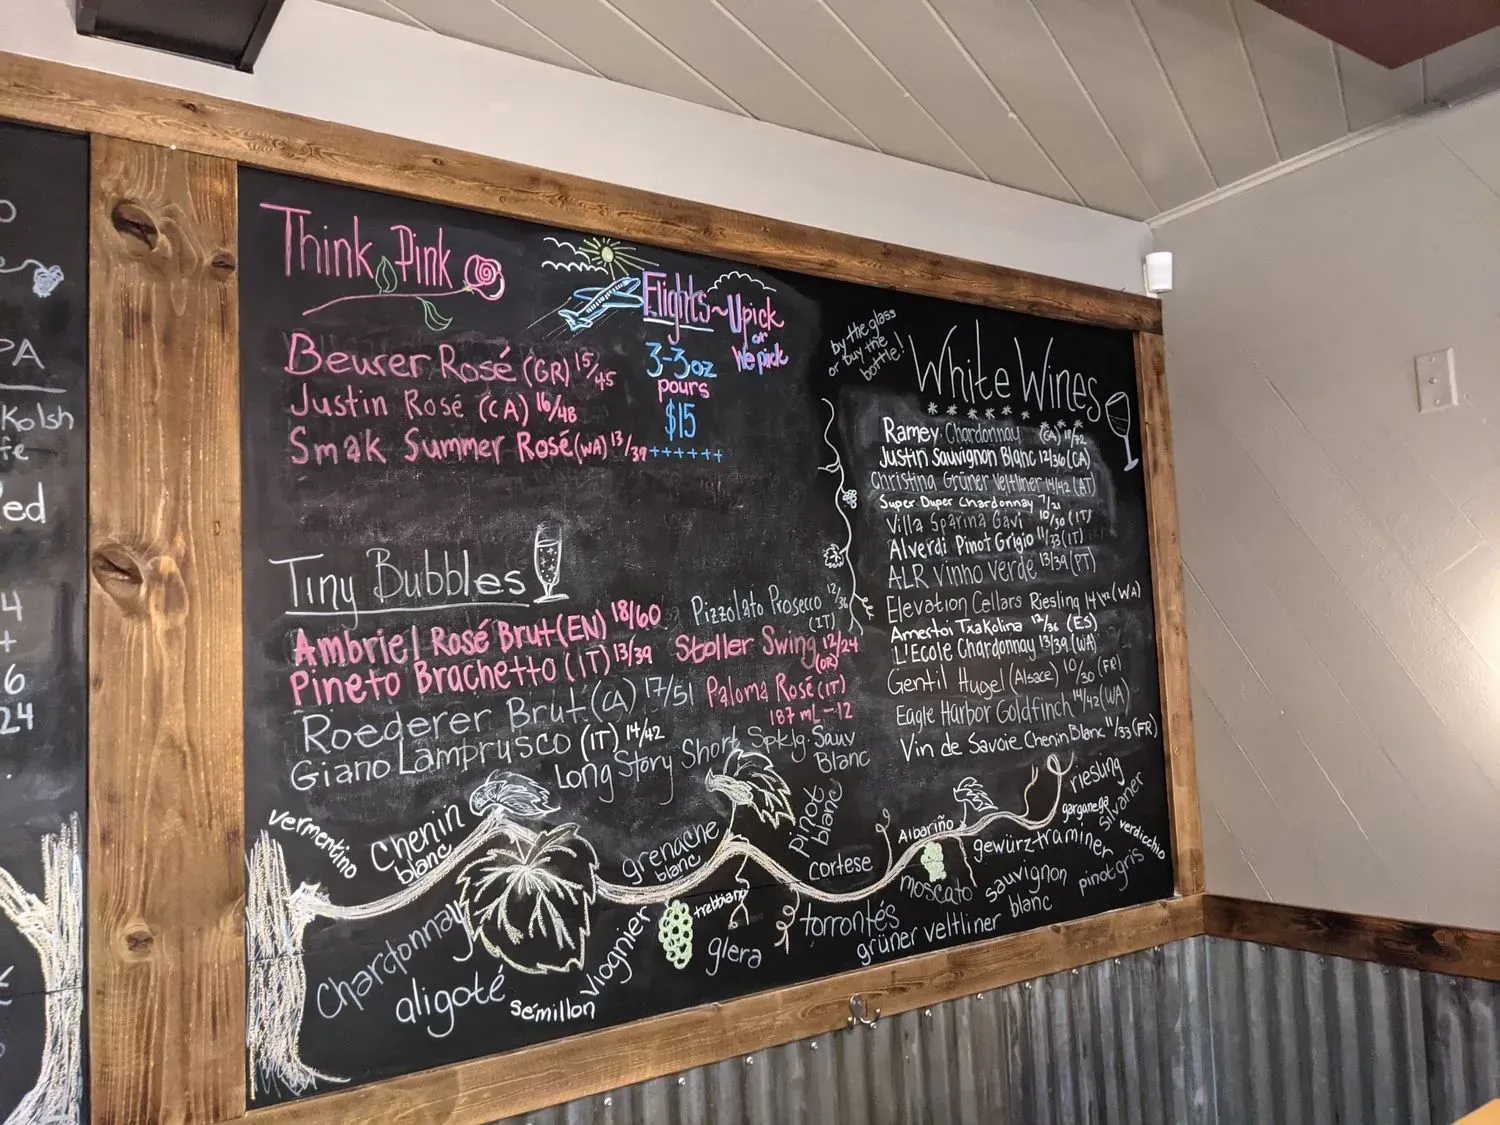 PA
Kolsh
24
Think Pink
Beurer Rosé (OR) 15/45
Justin Rosé (CA) 16/48
Smak Summer Rosé (WA) 13/39
Flights ~ U pick
or
We pick
3-3oz
pours
$15
++++++
by the glass
or buy the
bottle!
White Wines
Ramey Chardonnay (CA)
Justin Sauvignon Blanc 12/36 (CA)
Christina Grüner Veltliner 14/42 (AT)
Super Duper Chardonnay 7/21
Villa Sparina Gavi 10/30 (IT)
Alverdi Pinot Grigio 11/33 (IT)
ALR Vinho Verde 13/39 (PT)
Elevation Cellars Riesling 14/42 (WA)
Amestoi Txakolina 12/36 (ES)
L'Ecole Chardonnay 13/39 (WA)
Gentil Hugel (Alsace) 10/30 (FR)
Eagle Harbor Goldfinch 14/42 (WA)
Vin de Savoie Chenin Blanc 11/33 (FR)
Tiny Bubbles
Ambriel Rosé Brut (EN) 18/60
Pineto Brachetto (IT) 13/39
Roederer Brut (CA) 17/51
Giano Lamprusco (IT) 14/42
Pizzolato Prosecco 12/36
(IT)
Stoller Swing 12/24
(OR)
Paloma Rosé (IT)
187 mL - 12
Long Story Short Spklg. Sauv
Blanc
vermentino
Chenin
blanc
grenache
blanc
pinot
blanc
cortese
Albariño
riesling
garganega
silvaner
verdicchio
gewürztraminer
moscato
sauvignon
blanc
pinot gris
Chardonnay
aligoté
sémillon
viognier
trebbiano
glera
torrontés
grüner veltliner